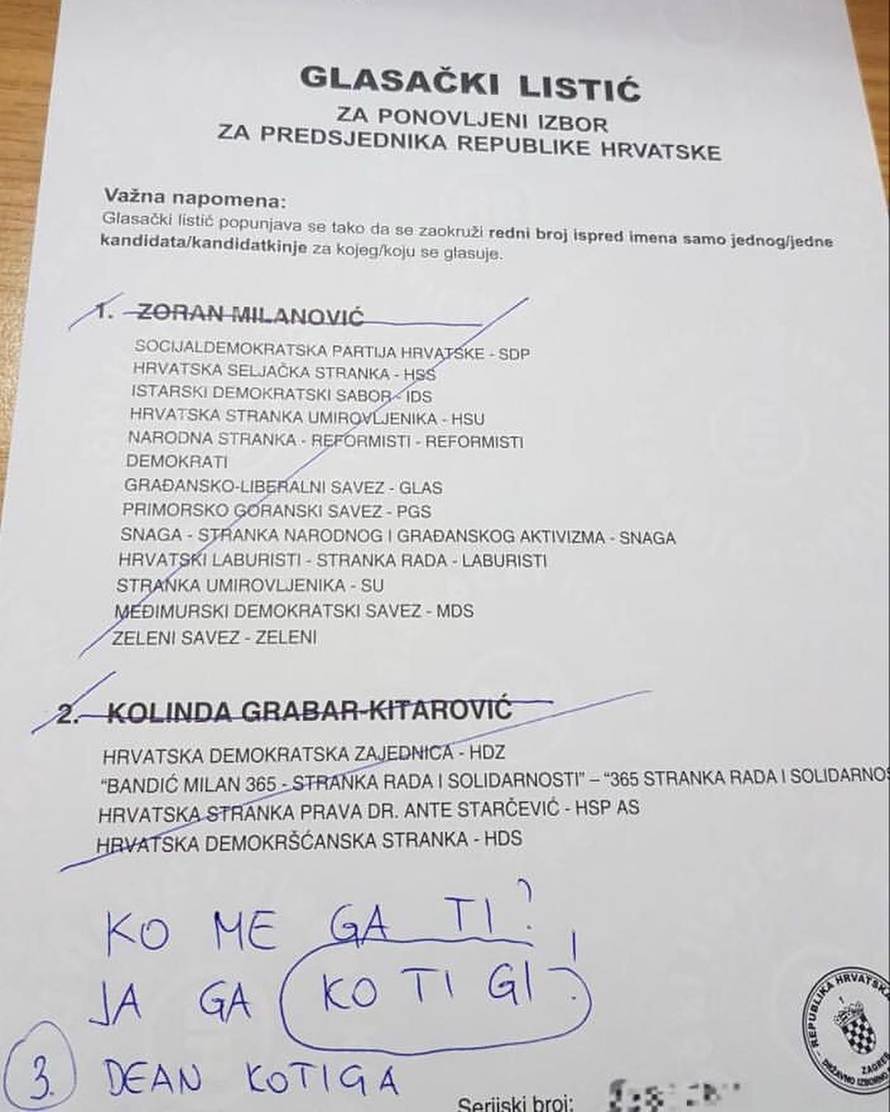 GLASAČKI LISTIĆ
ZA PONOVLJENI IZBOR
ZA PREDSJEDNIKA REPUBLIKE HRVATSKE
Važna napomena:
Glasački listić popunjava se tako da se zaokruži redni broj ispred imena samo jednog/jedne
kandidata/kandidatkinje za kojeg/koju se glasuje.
1. ZORAN MILANOVIĆ
SOCIJALDEMOKRATSKA PARTIJA HRVATSKE - SDP
HRVATSKA SELJAČKA STRANKA - HSS
ISTARSKI DEMOKRATSKI SABOR - IDS
HRVATSKA STRANKA UMIROVLJENIKA - HSU
NARODNA STRANKA - REFORMISTI - REFORMISTI
DEMOKRATI
GRAĐANSKO-LIBERALNI SAVEZ - GLAS
PRIMORSKO GORANSKI SAVEZ - PGS
SNAGA - STRANKA NARODNOG I GRAĐANSKOG AKTIVIZMA - SNAGA
HRVATSKI LABURISTI - STRANKA RADA - LABURISTI
STRANKA UMIROVLJENIKA - SU
MEĐIMURSKI DEMOKRATSKI SAVEZ - MDS
ZELENI SAVEZ - ZELENI
2. KOLINDA GRABAR-KITAROVIĆ
HRVATSKA DEMOKRATSKA ZAJEDNICA - HDZ
“BANDIĆ MILAN 365 - STRANKA RADA I SOLIDARNOSTI” – “365 STRANKA RADA I SOLIDARNOS
HRVATSKA STRANKA PRAVA DR. ANTE STARČEVIĆ - HSP AS
HRVATSKA DEMOKRŠĆANSKA STRANKA - HDS
KO ME GA TI?
JA GA KO TI GI!
3. DEAN KOTIGA
REPUBLIKA HRVATSKA
DRŽAVNO IZBORNO
ZAGREB
Serijski broj: